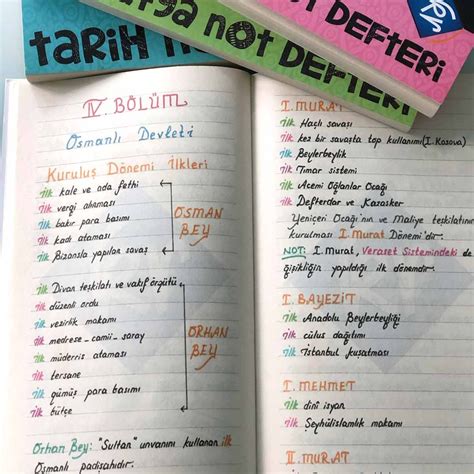 DEFTERİ
NOT DEFTERİ
TARİH
IV. BÖLÜM
Osmanlı Devleti
Kuruluş Dönemi İlkleri
ilk kale ve ada fethi
ilk vergi alınması
ilk bakır para basımı
ilk kadı ataması
ilk Bizansla yapılan savaş
OSMAN
BEY
ilk Divan teşkilatı ve vakıf örgütü
ilk düzenli ordu
ilk vezirlik makamı
ilk medrese - camii - saray
ilk müderris ataması
ilk tersane
ilk gümüş para basımı
ilk bütçe
ORHAN
BEY
Orhan Bey: "Sultan" unvanını kullanan ilk
Osmanlı padişahıdır.
I. MURAT
ilk Haçlı savaşı
ilk kez bir savaşta top kullanımı (I. Kosova)
ilk Beylerbeylik
ilk Tımar sistemi
ilk Acemi Oğlanlar Ocağı
ilk Defterdar ve Kazasker
Yeniçeri Ocağı'nın ve Maliye teşkilatının
kurulması I Murat Dönemi'dir.
NOT: I. Murat, Veraset Sistemindeki
ğişikliğin yapıldığı ilk dönemdir.
I. BAYEZİT
ilk Anadolu Beylerbeyliği
ilk cülus dağıtımı
ilk İstanbul kuşatması
I. MEHMET
ilk dini isyan
ilk Şeyhülislamlık makamı
II. MURAT